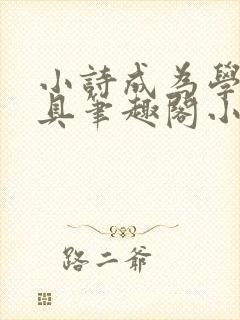 小詩成為學
具筆趣閣小
路二爺